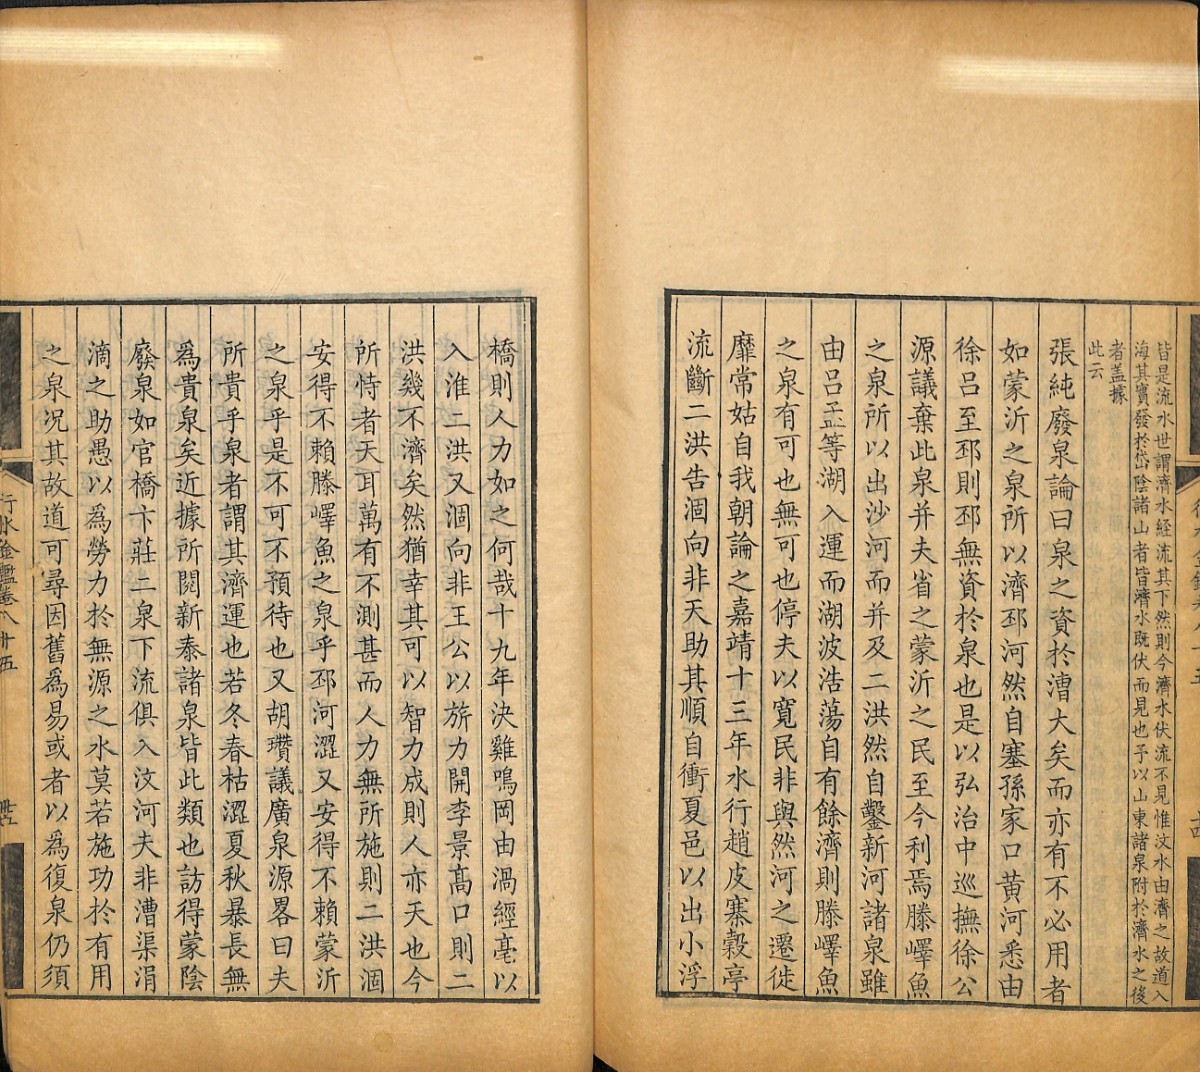 皆是流水世謂濟水経流其下然則今濟水伏流不見惟汶水由濟之故道入
海其實發於岱陰諸山者皆濟水既伏而見也予以山東諸泉附於濟水之後
者盖據
此云
張純廢泉論曰泉之資於漕大矣而亦有不必用者
如蒙沂之泉所以濟邳河然自塞孫家口黄河悉由
徐吕至邳則邳無資於泉也是以弘治中巡撫徐公
源議棄此泉并夫省之蒙沂之民至今利焉滕嶧魚
之泉所以出沙河而并及二洪然自鑿新河諸泉雖
由吕孟等湖入運而湖波浩蕩自有餘濟則滕嶧魚
之泉有可也無可也停夫以寬民非與然河之遷徙
靡常姑自我朝論之嘉靖十三年水行趙皮寨穀亭
流斷二洪告涸向非天助其順自衝夏邑以出小浮
橋則人力如之何哉十九年決雞鳴岡由渦經亳以
入淮二洪又涸向非王公以旂力開李景高口則二
洪幾不濟矣然猶幸其可以智力成則人亦天也今
所恃者天耳萬有不測甚而人力無所施則二洪涸
安得不賴滕嶧魚之泉乎邳河澀又安得不賴蒙沂
之泉乎是不可不預待也又胡瓚議廣泉源畧曰夫
所貴乎泉者謂其濟運也若冬春枯澀夏秋暴長無
爲貴泉矣近據所閱新泰諸泉皆此類也訪得蒙陰
廢泉如官橋卞莊二泉下流俱入汶河夫非漕渠涓
滴之助愚以爲勞力於無源之水莫若施功於有用
之泉况其故道可尋因舊爲易或者以爲復泉仍須
行水金鑑卷八十五